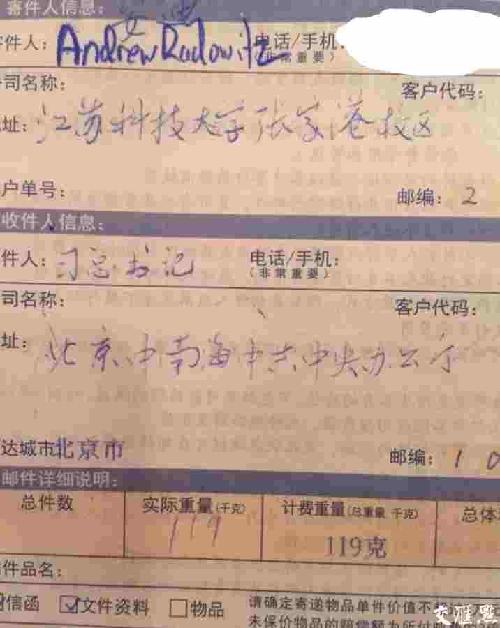 寄件人信息:
件人: Andrew 电话/手机:
(非常重要)
司名称: 客户代码:
址: 江苏科技大学张家港校区
户单号: 邮编: 2
收件人信息:
件人: 习总书记 电话/手机:
(非常重要)
司名称: 客户代码:
址: 北京中南海中共中央办公厅
达城市 北京市 邮编: 1 0
邮件详细说明:
总件数 实际重量(千克) 计费重量(总重量 千克) 总体
119 119克
件品名:
信函 ☑文件资料 □物品 请确定寄递物品单件价值不
未保价物品的赔偿额为所付
交汇点